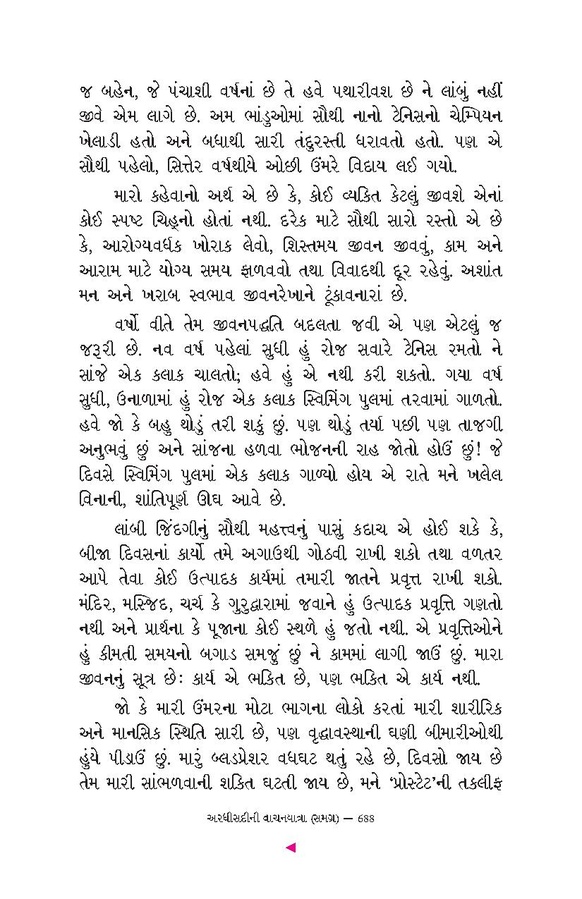 જ બહેન, જે પંચાશી વર્ષનાં છે તે હવે પથારીવશ છે ને લાંબું નહીં
જીવે એમ લાગે છે. અમ ભાંડુઓમાં સૌથી નાનો ટેનિસનો ચેમ્પિયન
ખેલાડી હતો અને બધાથી સારી તંદુરસ્તી ધરાવતો હતો. પણ એ
સૌથી પહેલો, સિત્તેર વર્ષથીયે ઓછી ઉંમરે વિદાય લઈ ગયો.
મારો કહેવાનો અર્થ એ છે કે, કોઈ વ્યકિત કેટલું જીવશે એનાં
કોઈ સ્પષ્ટ ચિહ્નો હોતાં નથી. દરેક માટે સૌથી સારો રસ્તો એ છે
કે, આરોગ્યવર્ધક ખોરાક લેવો, શિસ્તમય જીવન જીવવું, કામ અને
આરામ માટે યોગ્ય સમય ફાળવવો તથા વિવાદથી દૂર રહેવું. અશાંત
મન અને ખરાબ સ્વભાવ જીવનરેખાને ટૂંકાવનારાં છે.
વર્ષો વીતે તેમ જીવનપદ્ધતિ બદલતા જવી એ પણ એટલું જ
જરૂરી છે. નવ વર્ષ પહેલાં સુધી હું રોજ સવારે ટેનિસ રમતો ને
સાંજે એક કલાક ચાલતો; હવે હું એ નથી કરી શકતો. ગયા વર્ષ
સુધી, ઉનાળામાં હું રોજ એક કલાક સ્વિમિંગ પુલમાં તરવામાં ગાળતો.
હવે જો કે બહુ થોડું તરી શકું છું. પણ થોડું તર્યા પછી પણ તાજગી
અનુભવું છું અને સાંજના હળવા ભોજનની રાહ જોતો હોઉં છું! જે
દિવસે સ્વિમિંગ પુલમાં એક કલાક ગાળ્યો હોય એ રાતે મને ખલેલ
વિનાની, શાંતિપૂર્ણ ઊઘ આવે છે.
લાંબી જિંદગીનું સૌથી મહત્ત્વનું પાસું કદાચ એ હોઈ શકે કે,
બીજા દિવસનાં કાર્યો તમે અગાઉથી ગોઠવી રાખી શકો તથા વળતર
આપે તેવા કોઈ ઉત્પાદક કાર્યમાં તમારી જાતને પ્રવૃત્ત રાખી શકો.
મંદિર, મસ્જિદ, ચર્ચ કે ગુરુદ્વારામાં જવાને હું ઉત્પાદક પ્રવૃત્તિ ગણતો
નથી અને પ્રાર્થના કે પૂજાના કોઈ સ્થળે હું જતો નથી. એ પ્રવૃત્તિઓને
હું કીમતી સમયનો બગાડ સમજું છું ને કામમાં લાગી જાઉં છું. મારા
જીવનનું સૂત્ર છેઃ કાર્ય એ ભકિત છે, પણ ભકિત એ કાર્ય નથી.
જો કે મારી ઉંમરના મોટા ભાગના લોકો કરતાં મારી શારીરિક
અને માનસિક સ્થિતિ સારી છે, પણ વૃદ્ધાવસ્થાની ઘણી બીમારીઓથી
હુંયે પીડાઉં છું. મારું બ્લડપ્રેશર વધઘટ થતું રહે છે, દિવસો જાય છે
તેમ મારી સાંભળવાની શકિત ઘટતી જાય છે, મને ‘પ્રોસ્ટેટ’ની તકલીફ
અરધીસદીની વાચનયાત્રા (સમગ્ર) — 688